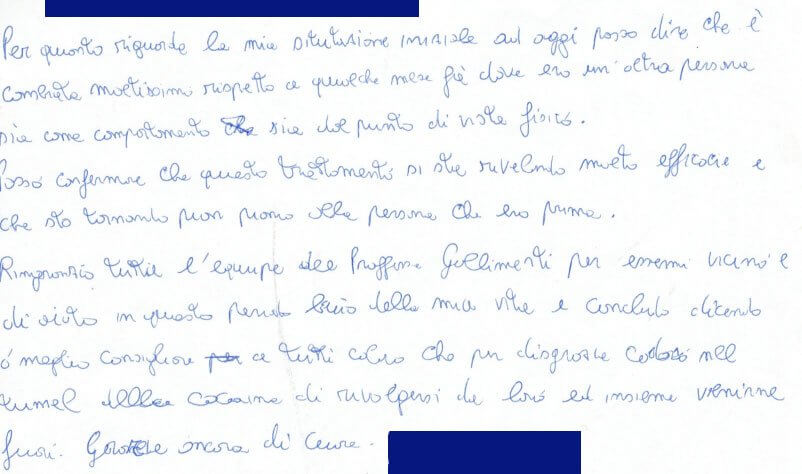 Per quanto riguarda la mia situtazione iniziale ad oggi posso dire che è
cambiata moltissimo rispetto a qualche mese fà dove ero un'altra persona
sia come comportamento sia dal punto di vista fisico.
Posso confermare che questo trattamento si sta rivelando molto efficace e
che sto tornando pian piano alla persona che ero prima.
Ringranzio tutta l'equipe del Gallimberti per essermi vicino e
di aiuto in questo periodo buio della mia vita e concludo dicendo
o meglio consigliare a tutti coloro che per disgrazia cadessi nel
tunnel della cocaina di rivolgersi da loro ed insieme venirne
fuori. Grazie ancora di cuore.